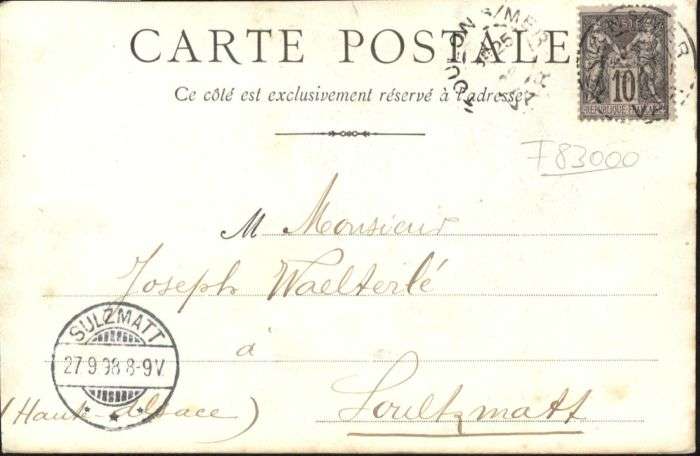 CARTE POSTALE
Ce côté est exclusivement réservé à l'adresse
TOULON S/MER
25
VAR
10
REPUBLIQUE FRANÇAISE
F83000
M Monsieur
Joseph Waelterlé
à
Soultzmatt
(Haute-Alsace)
SULZMATT
27.9.98 8-9V.